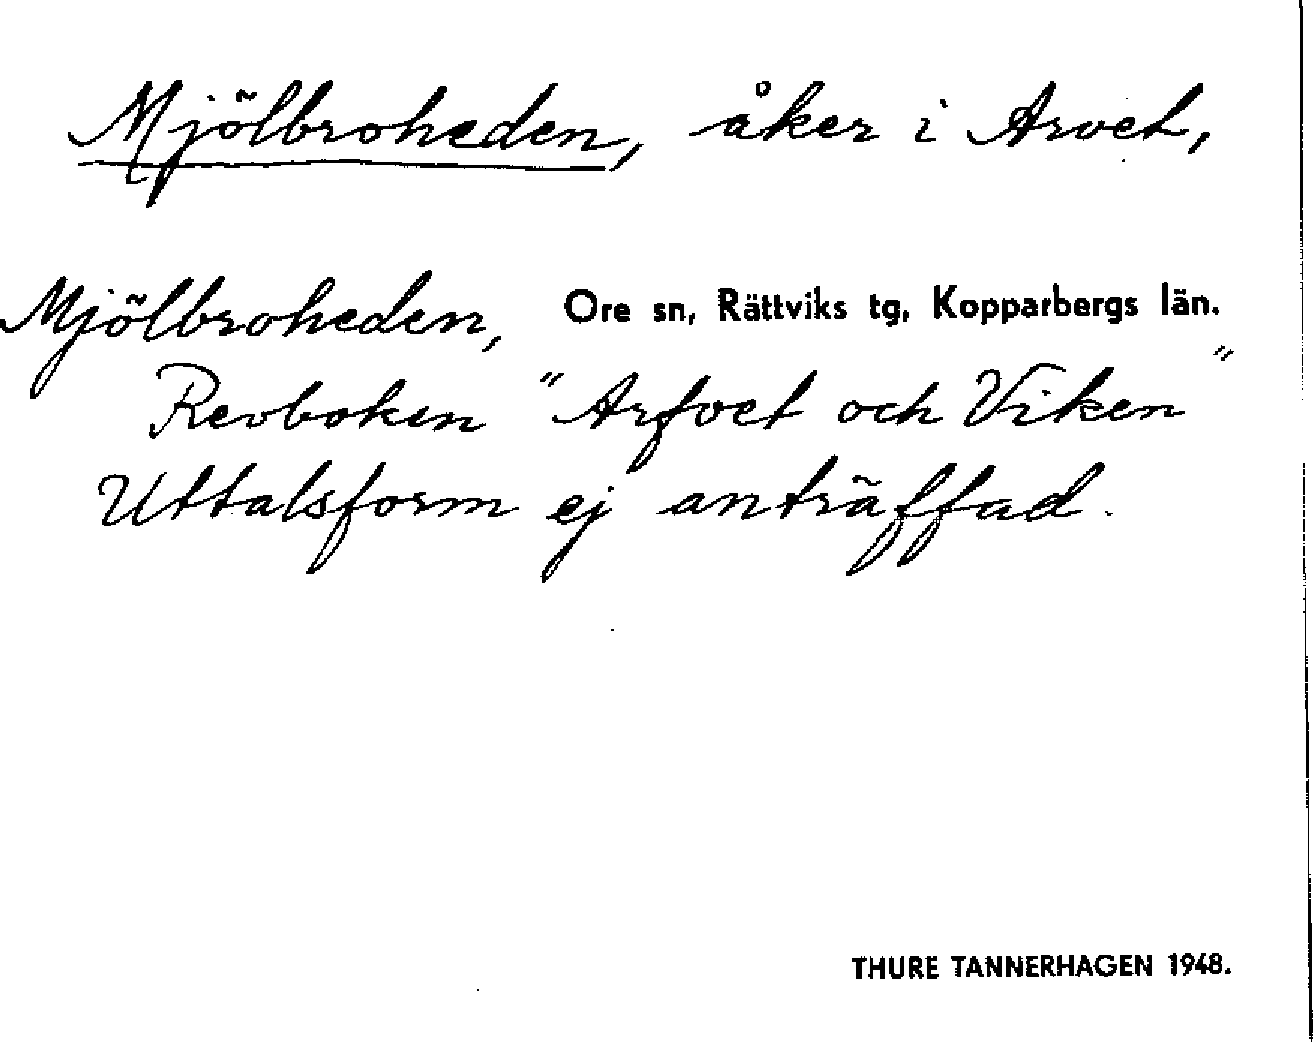 Mjölbroheden, åker i Arvet,
Mjölbroheden, Ore sn, Rättviks tg, Kopparbergs län.
Revboken "Arfvet och Viken"
Uttalsform ej anträffad.
THURE TANNERHAGEN 1948.